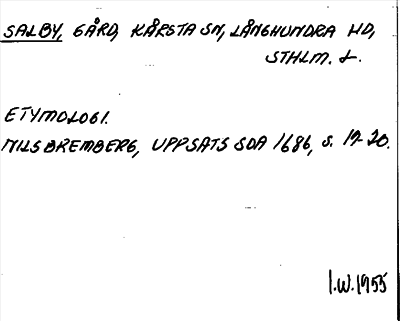 SALBY, GÅRD, KÅRSTA SN, LÅNGHUNDRA HD,
STHLM. L.
ETYMOLOGI.
NILS BREMBERG, UPPSATS SOA 1686, s. 19-20.
I.W. 1955